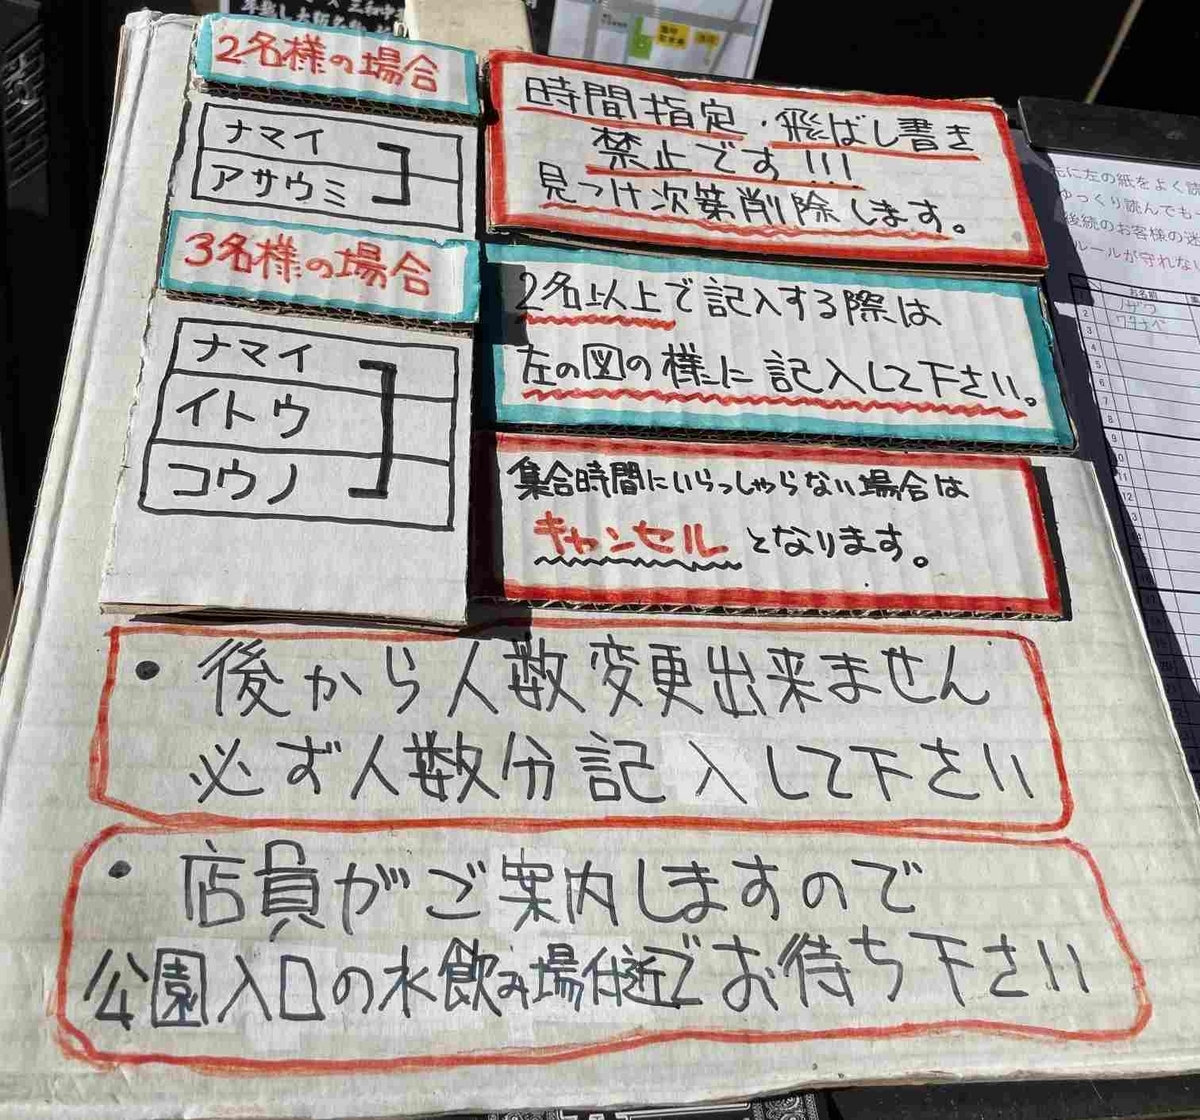 2名様の場合
ナマイ
アサウミ
3名様の場合
ナマイ
イトウ
コウノ
時間指定・飛ばし書き
禁止です!!!
見つけ次第削除します。
2名以上で記入する際は
左の図の様に記入して下さい。
集合時間にいらっしゃらない場合は
キャンセルとなります。
・後から人数変更出来ません
必ず人数分記入して下さい
・店員がご案内しますので
公園入口の水飲み場付近でお待ち下さい
に左の紙をよく読
ゆっくり読んでも
後続のお客様の迷
ルールが守れない
お名前
1 ノザワ
2 ワタナベ
3
4
5
6
7
8
9
10
11
12